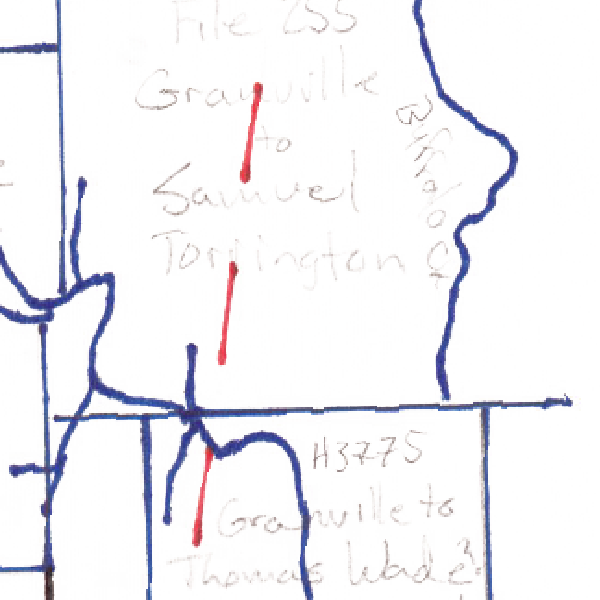 File 255
Granville
to
Samuel
Torrington
Buffalo C
H3775
Granville to
Thomas Wade?